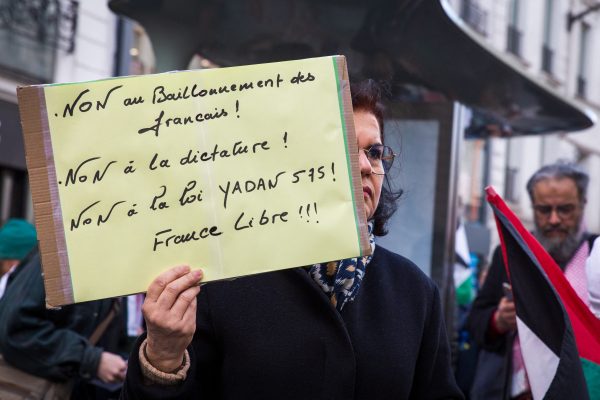 . NON au Baillonnement des
français !
. NON à la dictature !
NON à la loi YADAN 575 !
France Libre !!!